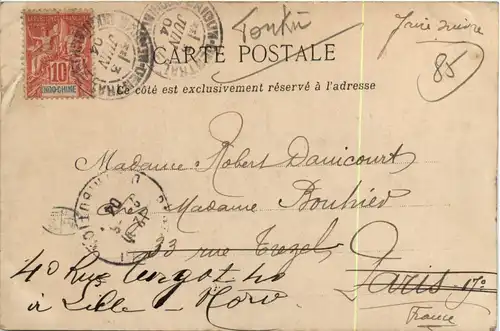 Tonkin
faire suivre
CARTE POSTALE
85
Ce côté est exclusivement réservé à l'adresse
10
INDO-CHINE
JUIN
04
Madame Robert Danicourt
Chez Madame Bouhier
33 rue Trezel
40 Rue Turgot 40
Paris 17e
à Lille - Nord
France